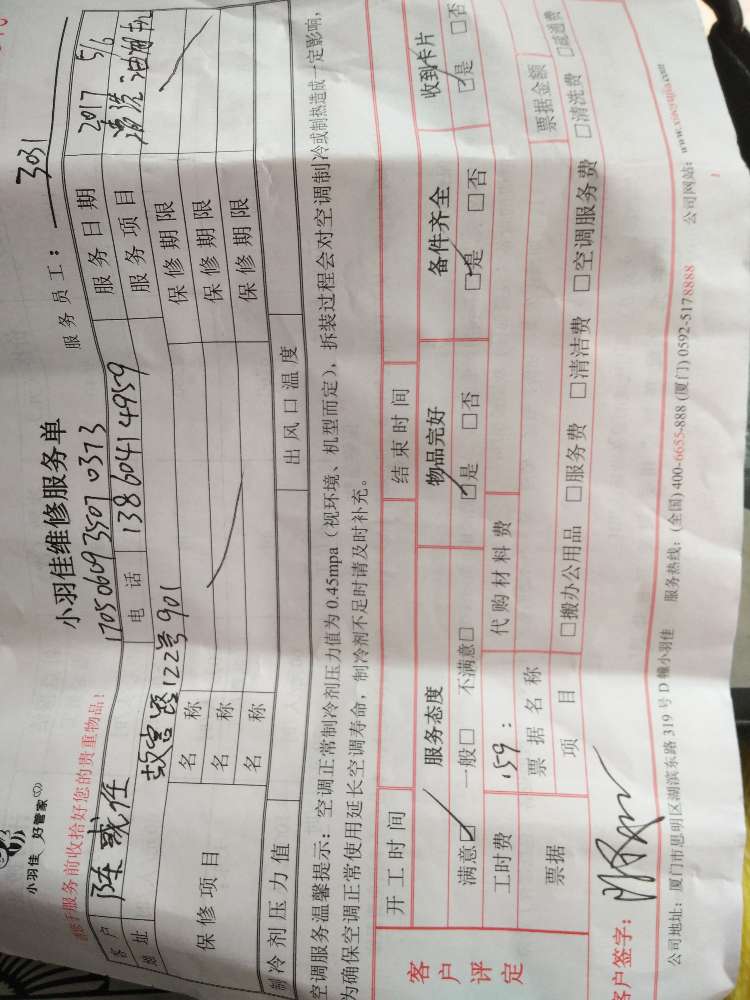 小羽佳 好管家
小羽佳维修服务单
服务员工：3031
请于服务前收拾好您的贵重物品！
1705060935070373
客户 陈 电话 13860414959 服务日期 2017 5/6
地址 故宫路122号901 服务项目 清洗油烟机
保修项目 名称 保修期限
名称 保修期限
名称 保修期限
制冷剂压力值 出风口温度
空调服务温馨提示：空调正常制冷剂压力值为0.45mpa（视环境、机型而定），拆装过程会对空调制冷或制热造成一定影响，
为确保空调正常使用延长空调寿命，制冷剂不足时请及时补充。
客户评定
开工时间 结束时间
服务态度 物品完好 备件齐全 收到卡片
满意☑ 一般□ 不满意□ ☑是 □否 ☑是 □否 ☑是 □否
工时费 159： 代购材料费
票据 票据名称 票据金额
项目 □搬办公用品 □服务费 □清洁费 □空调服务费 □清洗费 □疏通费
客户签字：
公司地址：厦门市思明区湖滨东路319号D幢小羽佳 服务热线：(全国)400-6655-888 (厦门)0592-5178888 公司网站：www.xiaoyujia.com